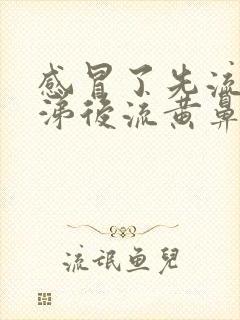 感冒了先流
涕後流黄鼻
流氓鱼兒